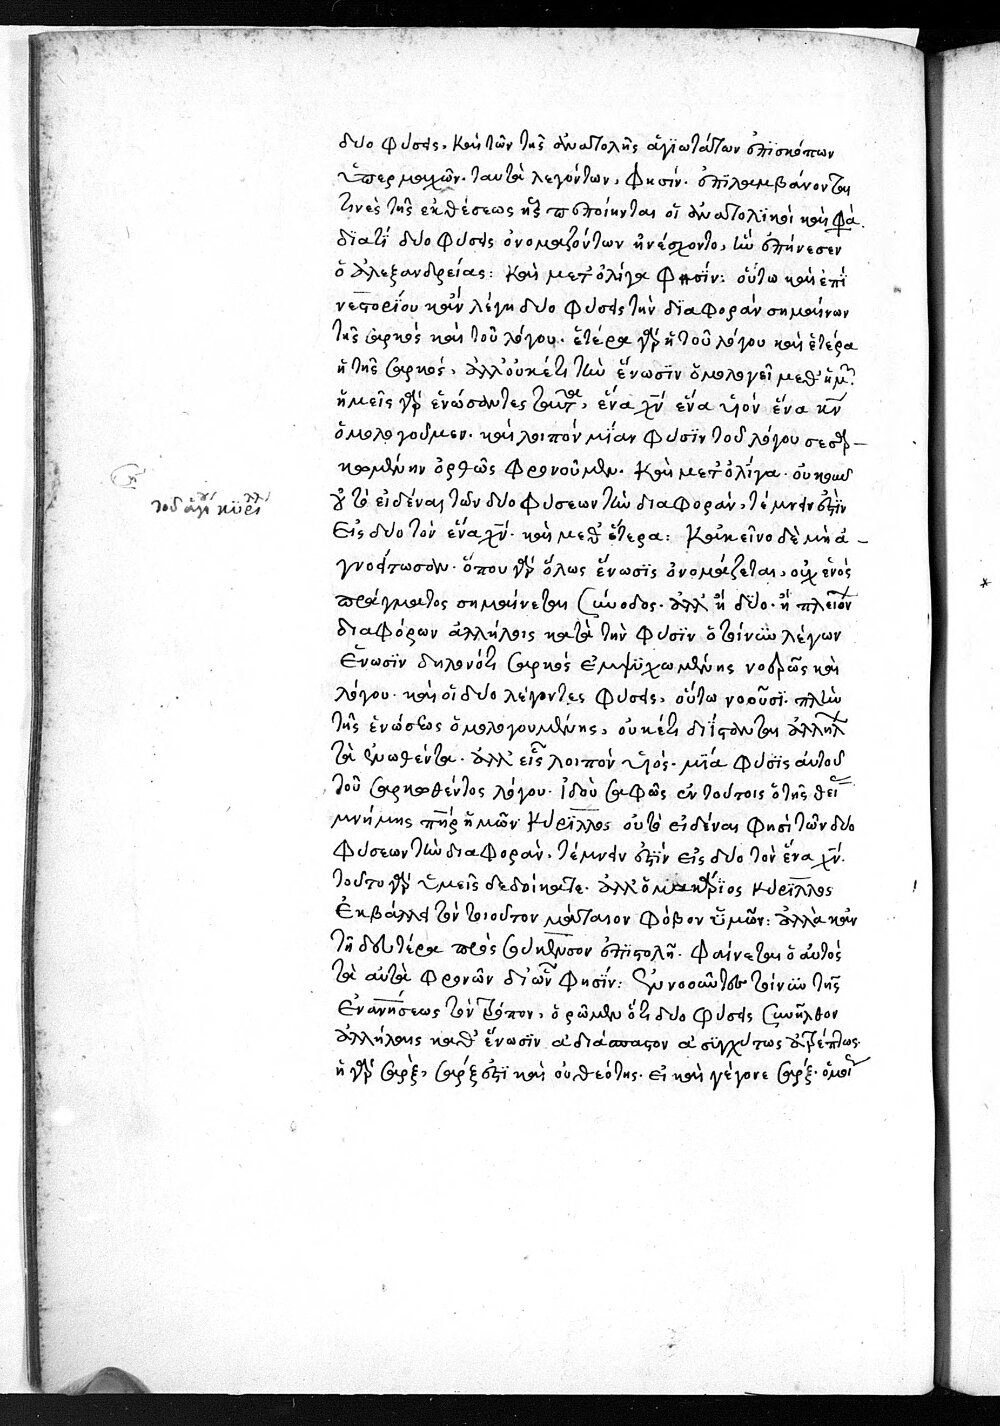 δυο φύσεις, καὶ τῶν τῆς ἀνατολῆς ἁγιωτάτων ἐπισκόπων
ὑπερμαχῶν. ταυτὰ λεγόντων, φησίν. ἐπιλαμβάνονται
τινὲς τῆς ἐκθέσεως ἧς πεποίηνται οἱ ἀνατολϊκοὶ καὶ φα
διατί δυο φύσεις ὀνομαζόντων ἠνέσχοντο, ἢ ἐπήνεσεν
ὁ ἀλεξανδρείας: καὶ μετ' ὀλίγα φησίν: οὕτω καὶ ἐπὶ
νεστορίου κἂν λέγη δυο φύσεις τὴν διαφορὰν σημαίνων
τῆς σαρκὸς καὶ τοῦ λόγου. ἑτέρα γὰρ ἡ τοῦ λόγου καὶ ἑτέρα
ἡ τῆς σαρκός, ἀλλ' οὐκέτι τὴν ἕνωσϊν ὁμολογεῖ μεθ' ἡμ
ἡμεῖς γὰρ ἑνώσαντες ταῦτα, ἕνα χν ἕνα υἱὸν ἕνα κν
ὁμολογοῦμεν. καὶ λοιπὸν μίαν φύσϊν τοῦ λόγου σεσαρ-
κωμένην ὀρθῶς φρονοῦμεν. καὶ μετ' ὀλίγα. οὐκοῦν
τὸ εἰδέναι τῶν δυο φύσεων τὴν διαφοράν, τέμνειν ἐστὶν
εἰς δυο τὸν ἕνα χν. καὶ μεθ' ἕτερα: κἀκεῖνο δὲ μὴ ἀ-
γνοείτωσαν. ὅπου γὰρ ὅλως ἕνωσϊς ὀνομάζεται, οὐχ ἑνὸς
πράγματος σημαίνεται σύνοδος. ἀλλ' ἢ δύο. ἢ πλειον
διαφόρων ἀλλήλοις κατὰ τὴν φύσϊν ὁ τοίνυν λέγων
ἕνωσϊν δηλονότι σαρκὸς ἐμψϋχωμένης νοερῶς καὶ
λόγου. καὶ οἱ δυο λέγοντες φύσεις, οὕτω νοοῦσϊ. πλὴν
τῆς ἑνώσεως ὁμολογουμένης, οὐκέτι διΐστανται ἀλλήλ
τὰ ἑνωθέντα. ἀλλ' εἷς λοιπὸν υἱός. μϊά φύσϊς αὐτοῦ
τοῦ σαρκωθέντος λόγου. ἰδοὺ σαφῶς ἐν τούτοις ὁ τῆς θεί
μνήμης πηρ ἡμῶν κύρϊλλος οὐ τὸ εἰδέναι φησὶ τῶν δυο
φύσεων τὴν διαφοράν, τέμνειν ἐστὶν εἰς δυο τὸν ἕνα χν.
τοῦτο γὰρ ὑμεῖς δεδοίκατε. ἀλλ' ὁ μακάρϊος κύρϊλλος
ἐκβάλλει τὸν τοιοῦτον μάταιον φόβον ὑμῶν: ἀλλὰ κἀν
τῆ δευτέρα πρὸς σούκενσον ἐπιστολῆ. φαίνεται ὁ αὐτὸς
τὰ αὐτὰ φρονῶν δι' ὧν φησίν: ἐννοοῦντες τοίνυν τῆς
ἐνανησεως τὸν τρόπον, ὁρῶμεν ὅτι δυο φύσεις συνῆλθον
ἀλλήλαις καθ' ἕνωσϊν ἀδιάσπαστον ἀσϋγχύτως ἀτρέπτως.
ἡ γὰρ σάρξ, σάρξ ἐστι καὶ οὐ θεότης. εἰ καὶ γέγονε σάρξ. ὁμοί
τοῦ ἁγί κϋρίλλ